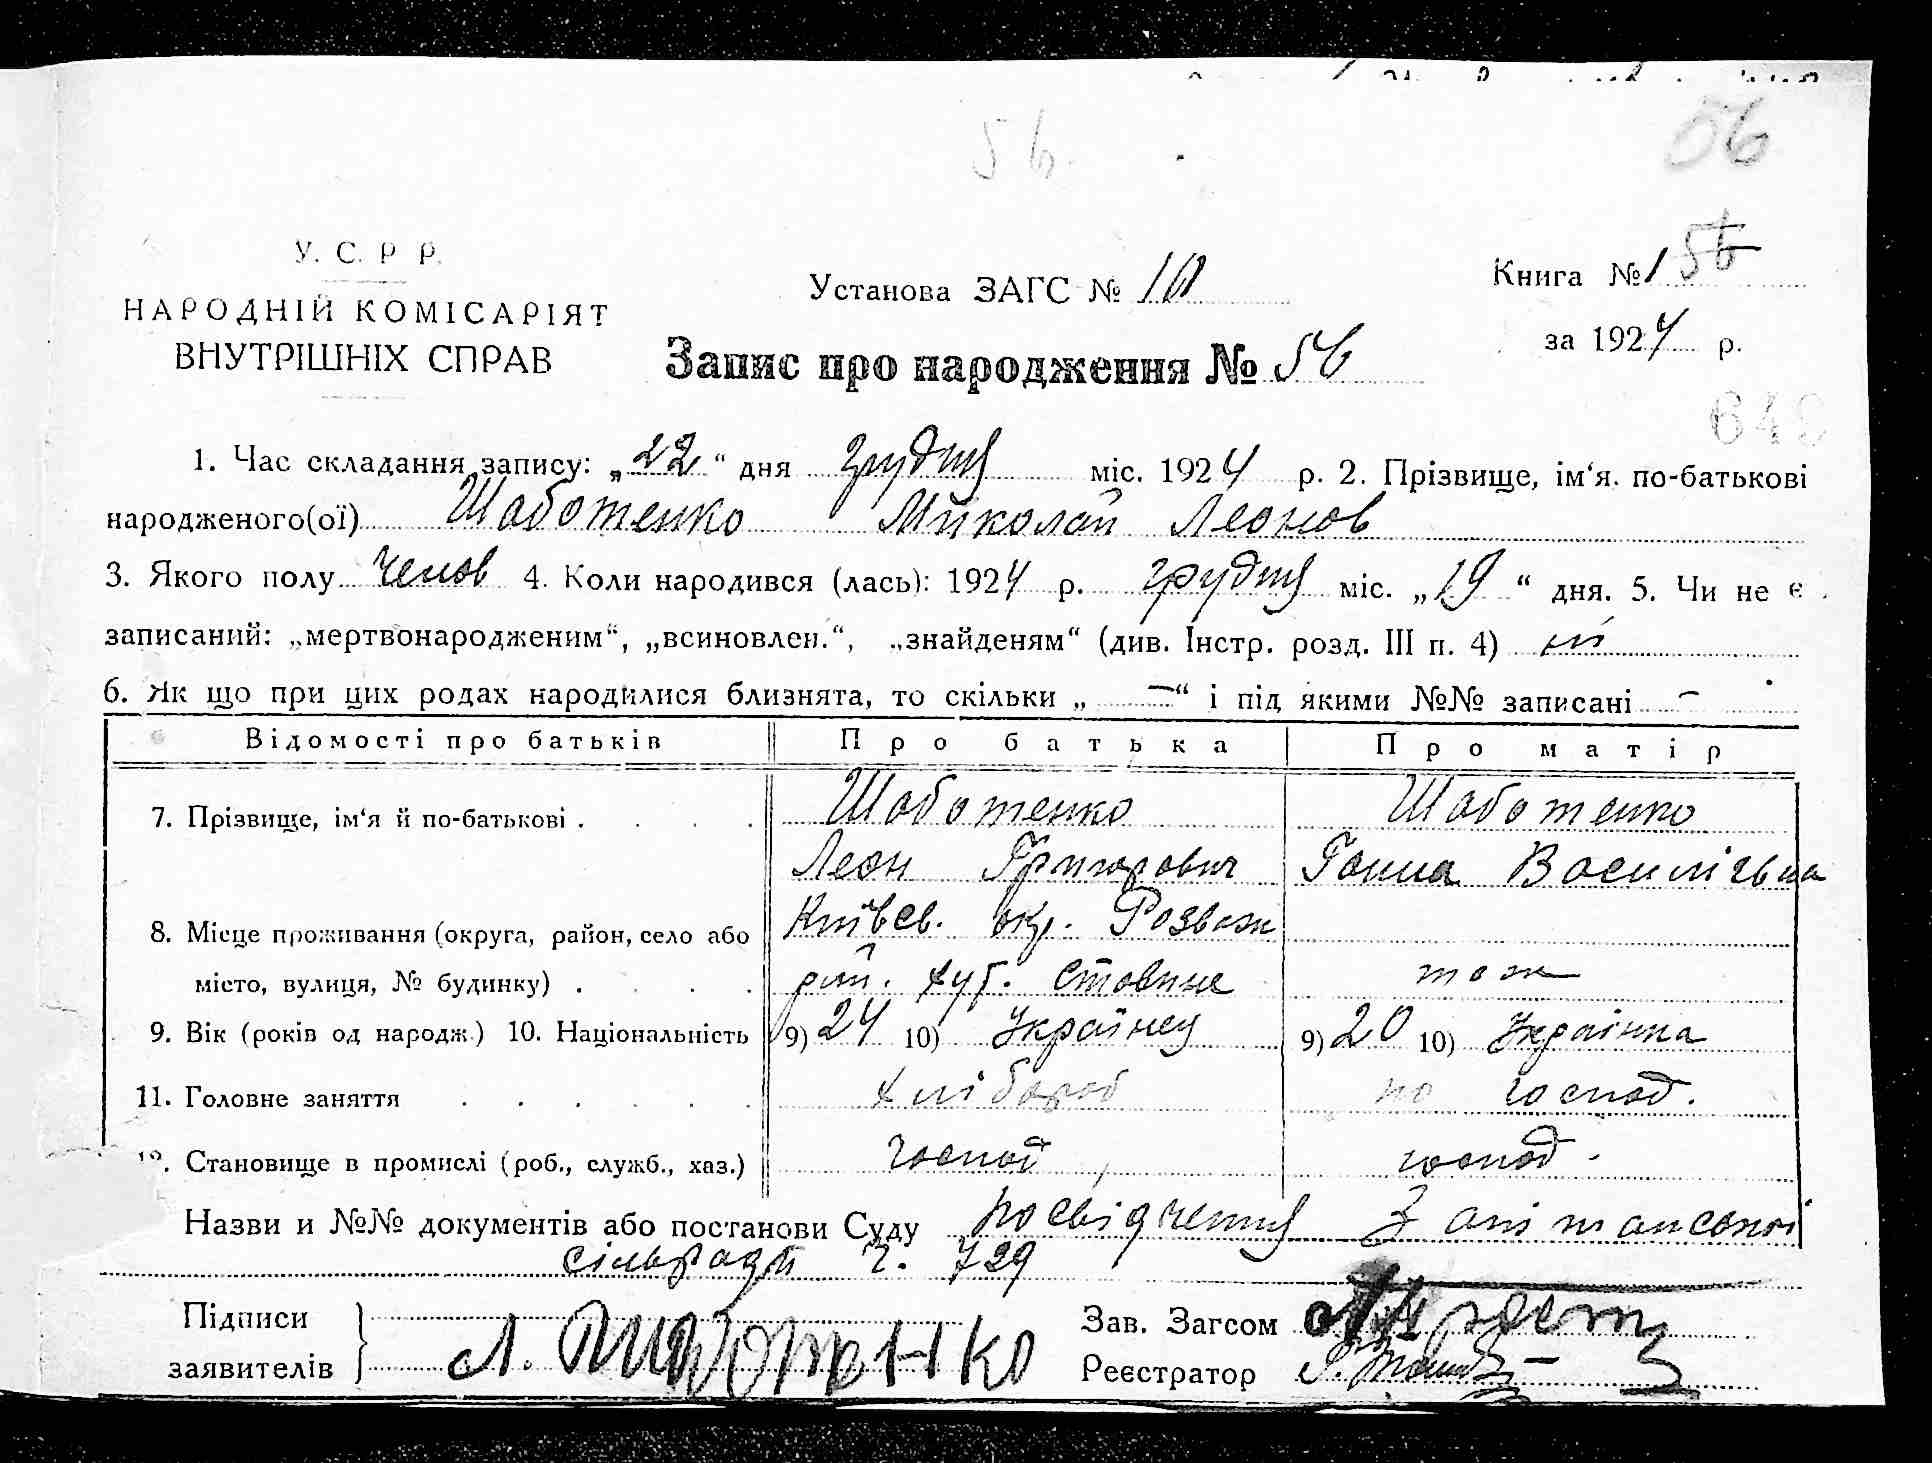 56
56
У. С. Р. Р.
НАРОДНІЙ КОМІСАРІЯТ
ВНУТРІШНІХ СПРАВ
Установа ЗАГС № 10
Книга № 1 56
за 1924 р.
Запис про народження № 56
649
1. Час складання запису: „22“ дня грудня міс. 1924 р. 2. Прізвище, ім‘я. по-батькові
народженого(ої) Шаботенко Миколай Леонов
3. Якого полу Челов 4. Коли народився (лась): 1924 р. грудня міс. „19“ дня. 5. Чи не є
записаний: „мертвонародженим“, „всиновлен.“, „знайденям“ (див. Інстр. розд. III п. 4) ні
6. Як що при цих родах народилися близнята, то скільки „ — “ і під якими №№ записані —
Відомості про батьків Про батька Про матір
7. Прізвище, ім‘я й по-батькові . . . . Шаботенко Шаботенко
Леон Григорович Ганна Василівна
8. Місце проживання (округа, район, село або Київсв. окр. Розваж
місто, вулиця, № будинку) . . . . рай. хут. Ставище тож
9. Вік (років од народж.) 10. Національність 9) 24 10) Українец 9) 20 10) Українка
11. Головне заняття . . . . . . хлібороб по господ.
12. Становище в промислі (роб., служб., хаз.) господ господ.
Назви и №№ документів або постанови Суду посвідчення
сільради ч. 729
Підписи
заявителів Л. Шаботенко
Зав. Загсом
Реєстратор